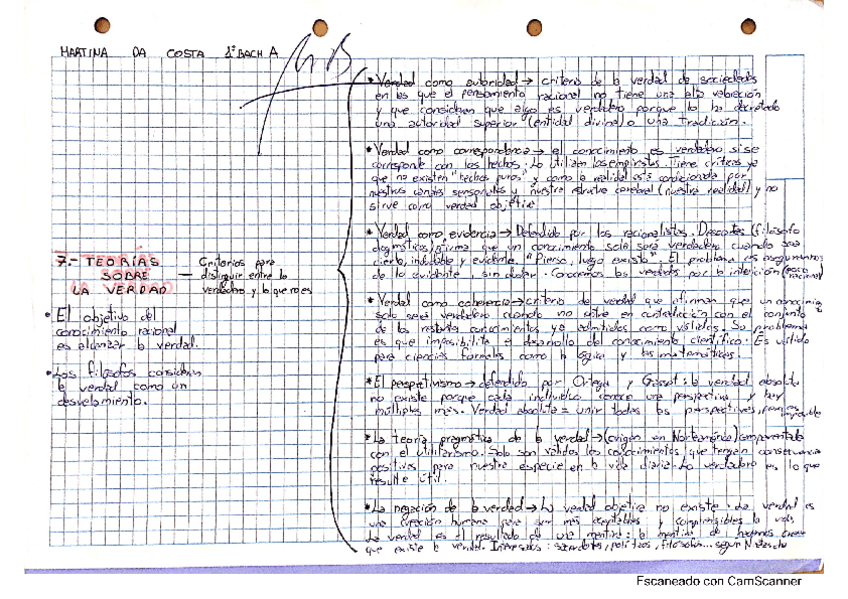 MARTINA DA COSTA 1º BACH A
MB
7.- TEORÍAS
SOBRE
LA VERDAD
— Criterios para
distinguir entre lo
verdadero y lo que no es
• El objetivo del
conocimiento racional
es alcanzar la verdad.
• Los filósofos consideran
la verdad como un
desvelamiento.
• Verdad como autoridad → criterio de la verdad de sociedades
en las que el pensamiento racional no tiene una alta valoración
y que consideran que algo es verdadero porque lo ha decretado
una autoridad superior (entidad divina) o una tradición.
• Verdad como correspondencia → el conocimiento es verdadero si se
corresponde con los hechos. Lo utilizan los empiristas. Tiene críticas ya
que no existen "hechos puros" y como la realidad está condicionada por
nuestros canales sensoriales y nuestra estructura cerebral (nuestra realidad) y no
sirve como verdad objetiva.
• Verdad como evidencia → Defendido por los racionalistas. Descartes (filósofo
dogmático) afirma que un conocimiento solo será verdadero cuando sea
cierto, indudable y evidente. "Pienso, luego existo". El problema es asegurarnos
de lo evidente, sin dudar. Conocemos las verdades por la intuición (poco
racional)
• Verdad como coherencia → criterio de verdad que afirman que un conocimiento
solo será verdadero cuando no entre en contradicción con el conjunto
de los restantes conocimientos ya admitidos como válidos. Su problema
es que imposibilita el desarrollo del conocimiento científico. Es válido
para ciencias formales como la lógica y las matemáticas.
• El perspectivismo → defendido por Ortega y Gasset: la verdad absoluta
no existe porque cada individuo conoce una perspectiva y hay
múltiples más. Verdad absoluta = unir todas las perspectivas,
• La teoría pragmática de la verdad → (origen en Norteamérica) emparentada
con el utilitarismo. Solo son válidos los conocimientos que tengan consecuencias
positivas para nuestra especie en la vida diaria. Lo verdadero es lo que
resulte útil.
• La negación de la verdad → La verdad objetiva no existe. La verdad es
una creación humana para hacer más aceptables y comprensibles la vida.
La verdad es el resultado de una mentira: la mentira de hacernos creer
que existe la verdad. Interesados: sacerdotes, políticos, filósofos... según Nietzsche
Escaneado con CamScanner